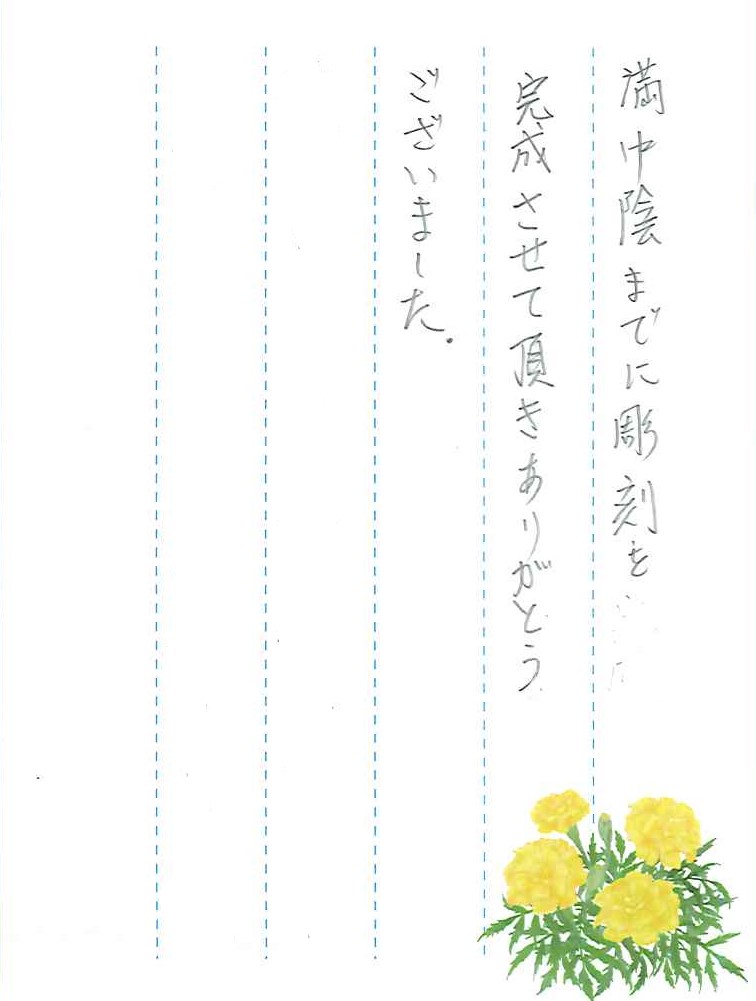 満中陰までに彫刻を
完成させて頂きありがとう
ございました.